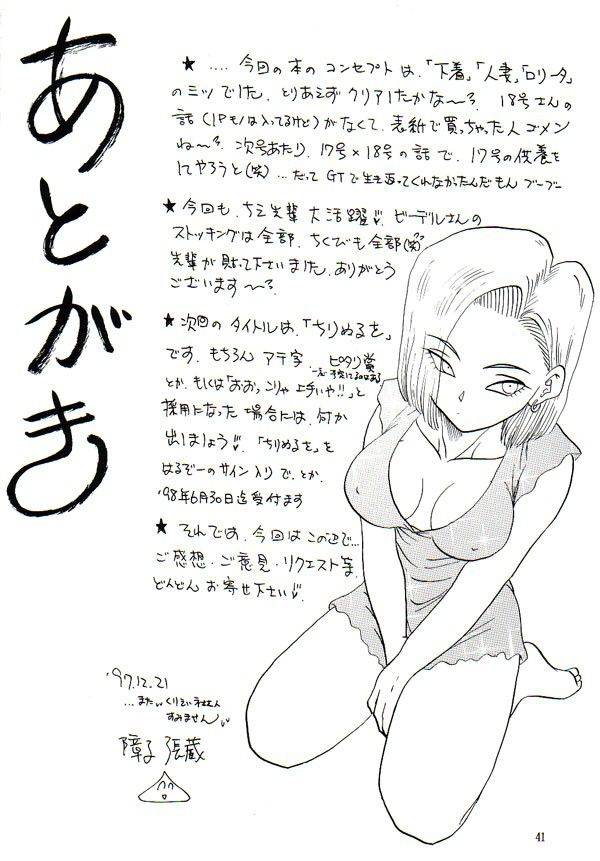 あとがき
★ .... 今回の本のコンセプトは、「下着」「人妻」「ロリータ」
の三ツでした、とりあえずクリアしたかな〜?。18号さんの
話(1Pモノは入ってるけど)がなくて、表紙で買っちゃった人ゴメン
ね〜?。次号あたり、17号×18号の話で、17号の供養を
にやろうと(笑) …だってGTで生き返ってくれなかったんだもんブーブー
★ 今回も、ちえ先輩大活躍。ビーデルさんの
ストッキングは全部、ちくびも全部(笑)
先輩が貼って下さいました、ありがとう
ございます〜?。
★ 次回のタイトルは、「ちりぬるを」
です、もちろんアテ字 ピタリ賞
とか、もしくは「おおっこりゃ上手いや!!」と
採用になった場合には、何か
出しましょう。「ちりぬるを」を
はるぞーのサイン入りで、とか、
'98年6月30日迄受付ます
★ それでは、今回はこの辺で…
ご感想・ご意見・リクエスト等、
どんどんお寄せ下さい
'97.12.21
すみません
障子張蔵
41